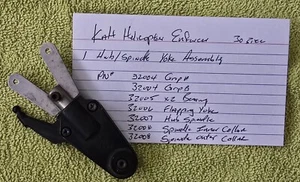 Kalt Helicopter Enforcer 30 size
1 Hub/Spindle Yoke Assembly
PN# 32004 Grip A
32004 Grip B
32005 x2 Bearing
32006 Flapping Yoke
32007 Hub Spindle
32008 Spindle Inner Collar
32008 Spindle Outer Collar